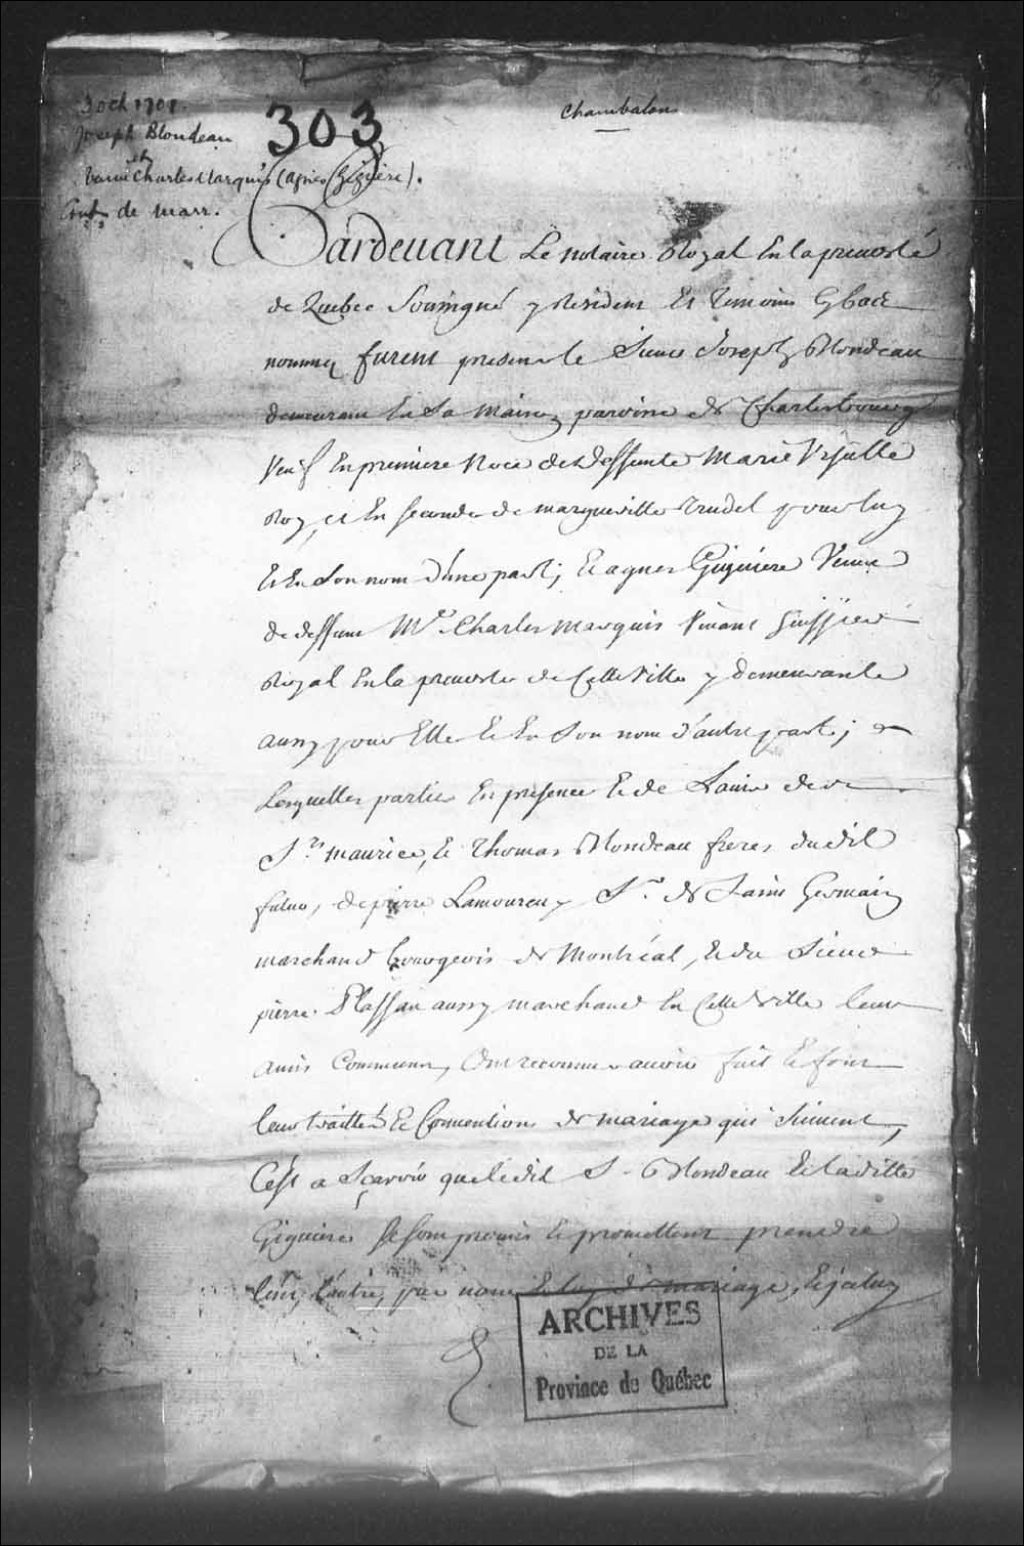 3 oct 1701.
Chambalon
303
Joseph Blondeau
et
Veuve Charles Marquis (Agnes Giguère).
Cont. de marr.
Pardevant Le notaire Royal En la prevosté
de Quebec Soussigné y Resident Et Temoins Cy bas
nommez furent presents le Sieur Joseph Blondeau
demeurant En Sa Maison, paroisse de Charlesbourg
Veuf En premiere Noce de deffunte Marie Ursulle
Roy, et En Seconde de margueritte Trudel pour luy
Et En Son nom d'une part; Et agnes Giguiere Veuve
de deffunt Me Charles Marquis Vivant huissier
Royal En la prevosté de Cette Ville y demeurante
aussy pour Elle Et En Son nom d'autre part;
Lesquelles parties En presence Et de L'avis de
Srs maurice, Et Thomas Blondeau freres dudit
futur, de pierre Lamoureux Sr de Saint Germain
marchand bourgeois de Montréal, Et du Sieur
pierre Plassan aussy marchand En Cette Ville leurs
amis Communs, Ont reconnu avoir fait Et font
leur traitté Et Conventions de mariage qui Suivent,
C'est a Sçavoir que ledit Sr Blondeau Et laditte
Giguiere Se Sont promis Et promettent prendre
l'un, l'autre, par nom Et loy de mariage, Et iceluy
ARCHIVES
DE LA
Province de Québec